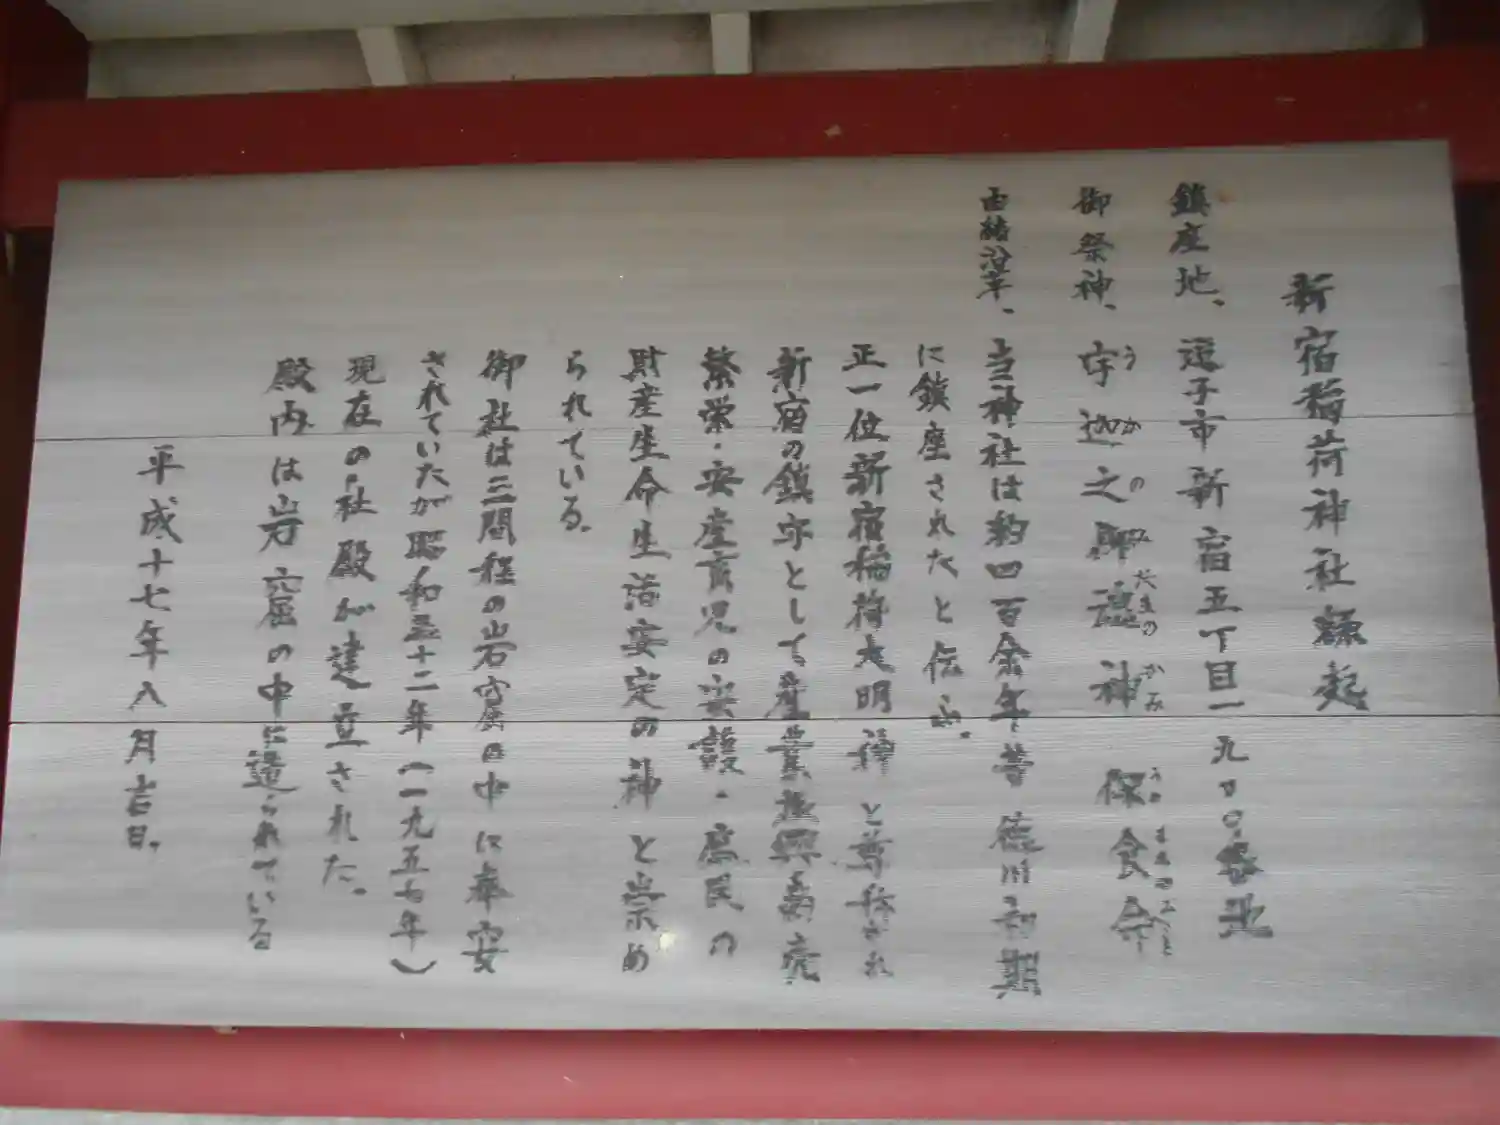 新宿稲荷神社縁起
鎮座地、逗子市新宿五丁目一九〇〇番地
御祭神、宇迦之御魂神 保食命
うかのみたまのかみ うけもちのみこと
由緒沿革、当神社は約四百余年昔 徳川初期
に鎮座されたと伝ふ。
正一位新宿稲荷大明神と尊称され
新宿の鎮守として産業振興商売
繁栄・安産育児の安護・庶民の
財産生命生活安定の神と崇め
られている。
御社は三間程の岩窟の中に奉安
されていたが昭和三十二年(一九五七年)
現在の社殿が建立された。
殿内は岩窟の中に造られている
平成十七年八月吉日。